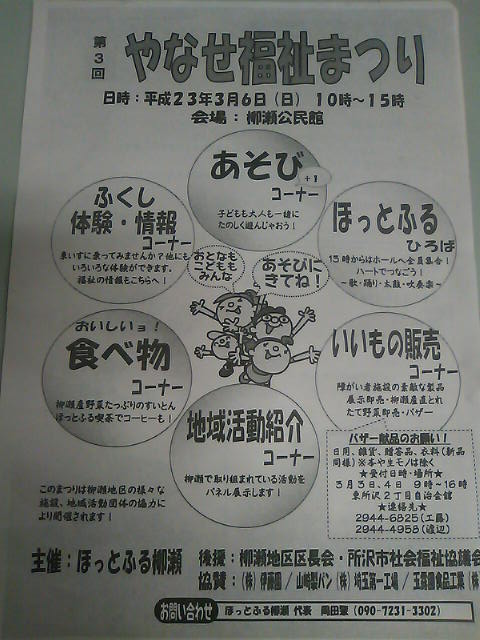 第3回
やなせ福祉まつり
日時：平成23年3月6日（日） 10時～15時
会場：柳瀬公民館
あそび
+1
コーナー
子どもも大人も一緒に
たのしく遊んじゃおう！
ふくし
体験・情報
コーナー
車いすに乗ってみませんか？他にも
いろいろな体験ができます。
福祉の情報もこちらへ！
ほっとふる
ひろば
15時からはホールへ全員集合！
ハートでつなごう！
～歌・踊り・太鼓・吹奏楽～
おとなも
こどもも
みんな
あそびに
きてね！
おいしいョ！
食べ物
コーナー
柳瀬産野菜たっぷりのすいとん
ほっとふる喫茶でコーヒーも！
いいもの販売
コーナー
障がい者施設の素敵な製品
展示即売・柳瀬産直とれ
たて野菜即売・バザー
地域活動紹介
コーナー
柳瀬で取り組まれている活動を
パネル展示します！
バザー献品のお願い！
日用、雑貨、贈答品、衣料（新品
同様）※本や生モノは除く
★受付日時・場所★
3月3、4日 9時～16時
東所沢2丁目自治会館
★連絡先★
2944-6825（工藤）
2944-4958（渡辺）
このまつりは柳瀬地区の様々な
施設、地域活動団体の協力に
より開催されます！
主催：ほっとふる柳瀬
後援：柳瀬地区区長会・所沢市社会福祉協議会
協賛：（株）伊藤園／山崎製パン（株）埼玉第一工場／玉露園食品工業（株
お問い合わせ
ほっとふる柳瀬 代表 岡田 （090-7231-3302）